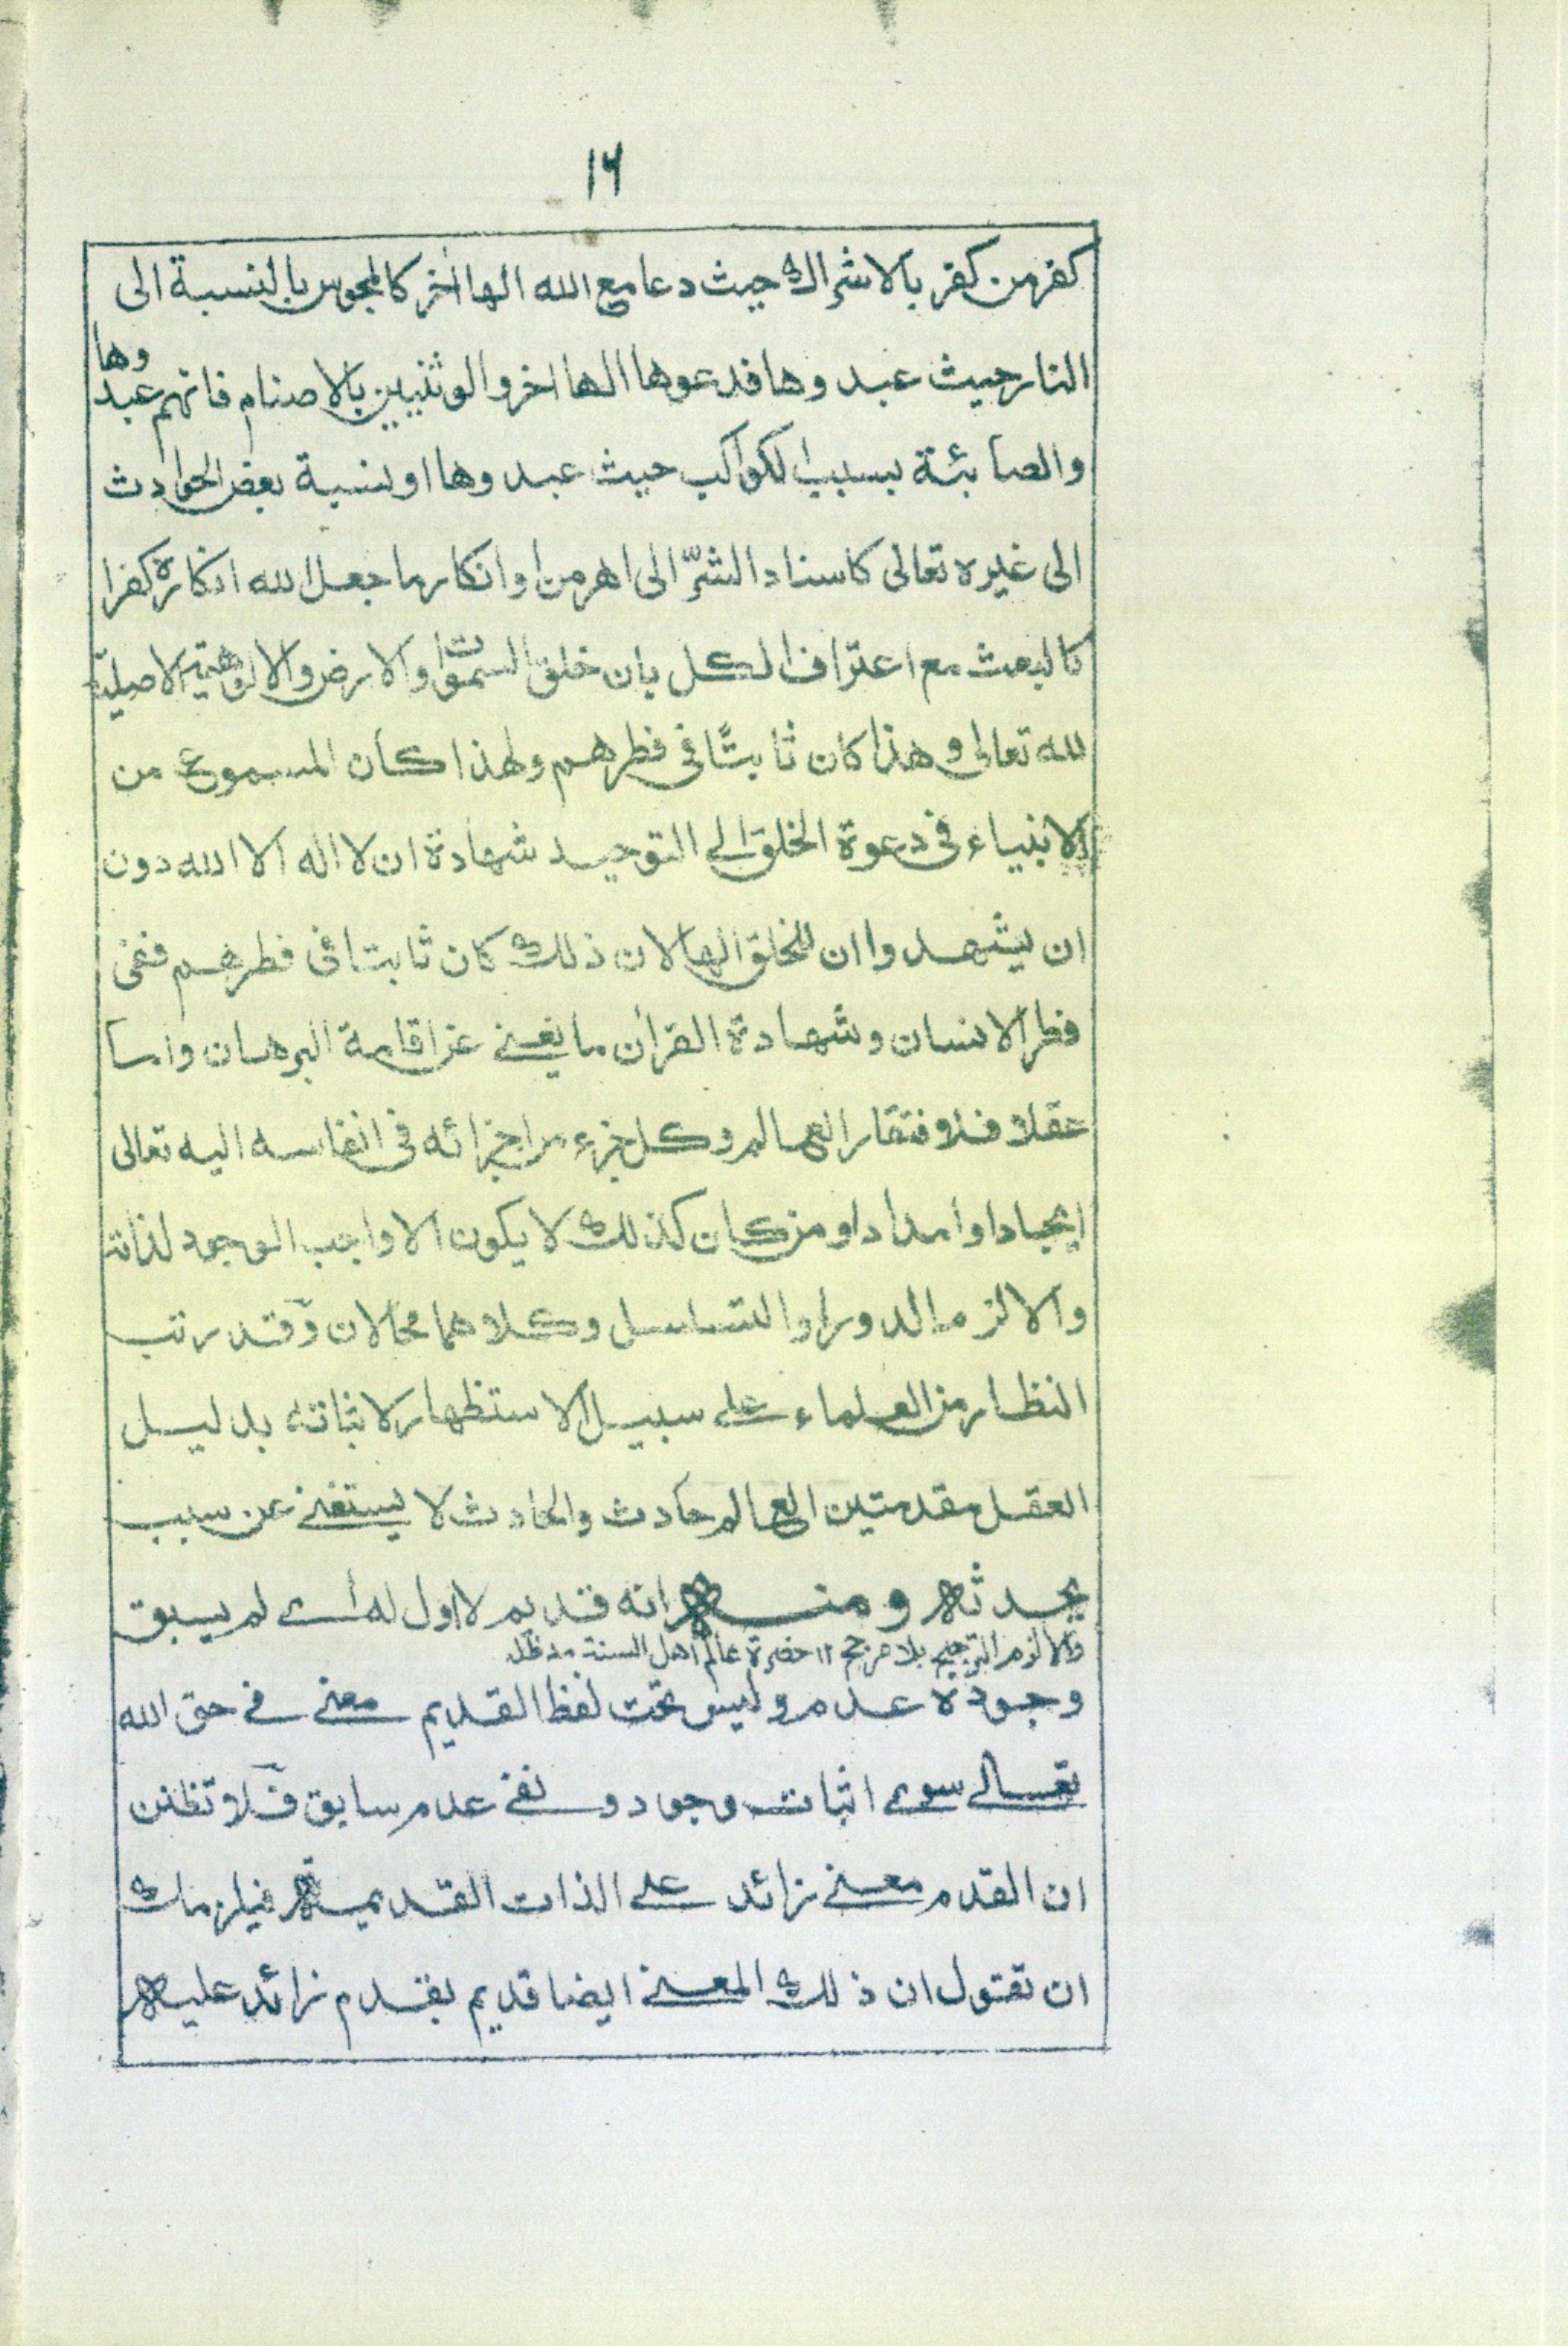 ١٦
كفر من كفر بالاشراك حيث دعا مع الله الها اٰخر كالمجوس بالنسبة الى
النار حيث عبدوها فدعوها الها اخر والوثنيين بالاصنام فانهم عبدوها
والصابئة بسبب الكواكب حيث عبدوها او نسبة بعض الحوادث
الى غيره تعالى كاسناد الشرّ الى اهرمن او انكار ما جعل الله انكاره كفرا
كالبعث مع اعتراف الكل بان خلق السمٰوٰت والارض والالوهية الاصليّة
لله تعالى و هذا كان ثابتًا فى فطرهم ولهذا كان المسموع من
الانبياء فى دعوة الخلق الى التوحيد شهادة ان لا اله الا الله دون
ان يشهدوا ان للخلق الها لان ذلك كان ثابتا فى فطرهم ففى
فطر الانسان وشهادة القراٰن ما يغنى عن اقامة البرهان واما
عقلا فلافتقار العالم وكل جزء من اجزائه فى انفاسه اليه تعالى
ايجادا وامدادا ومن كان كذلك لا يكون الا واجب الوجود لذاته
والا لزم الدور او التسلسل وكلاهما محالان وقد رتب
النظار من العلماء على سبيل الاستظهار لاثباته بدليل
العقل مقدمتين العالم حادث والحادث لا يستغنى عن سبب
يحدثه ومنه انه قديم لا اول له اى لم يسبق
والا لزم الترجيح بلا مرجح ١٢ حضرة عالم اهل السنة مد ظله
وجوده عدم وليس تحت لفظ القديم معنى فى حق الله
تعالى سوى اثبات وجود و نفى عدم سابق فلا تظنن
ان القدم معنى زائد على الذات القديمة فيلزمك
ان تقول ان ذلك المعنى ايضا قديم بقدم زائد عليه